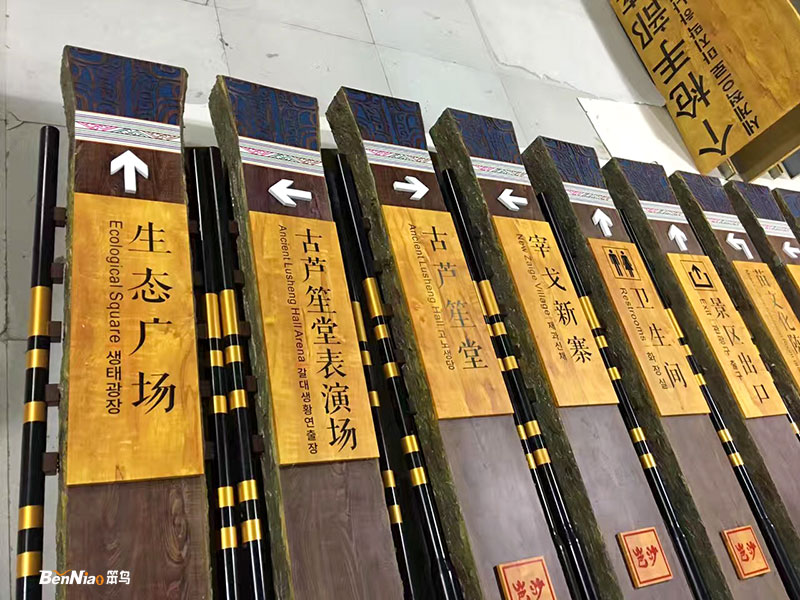 生态广场
Ecological Square 생태광장
古芦笙堂表演场
Ancient Lusheng Hall Arena 갈대생황연출장
古芦笙堂
Ancient Lusheng Hall 고노생당
宰戈新寨
New Zaige Village 재과신채
卫生间
Restrooms 화장실
景区出口
Exit 관광구출구
苗文化
个枪手部
岜沙
岜沙
岜沙
BenNiao 笨鸟